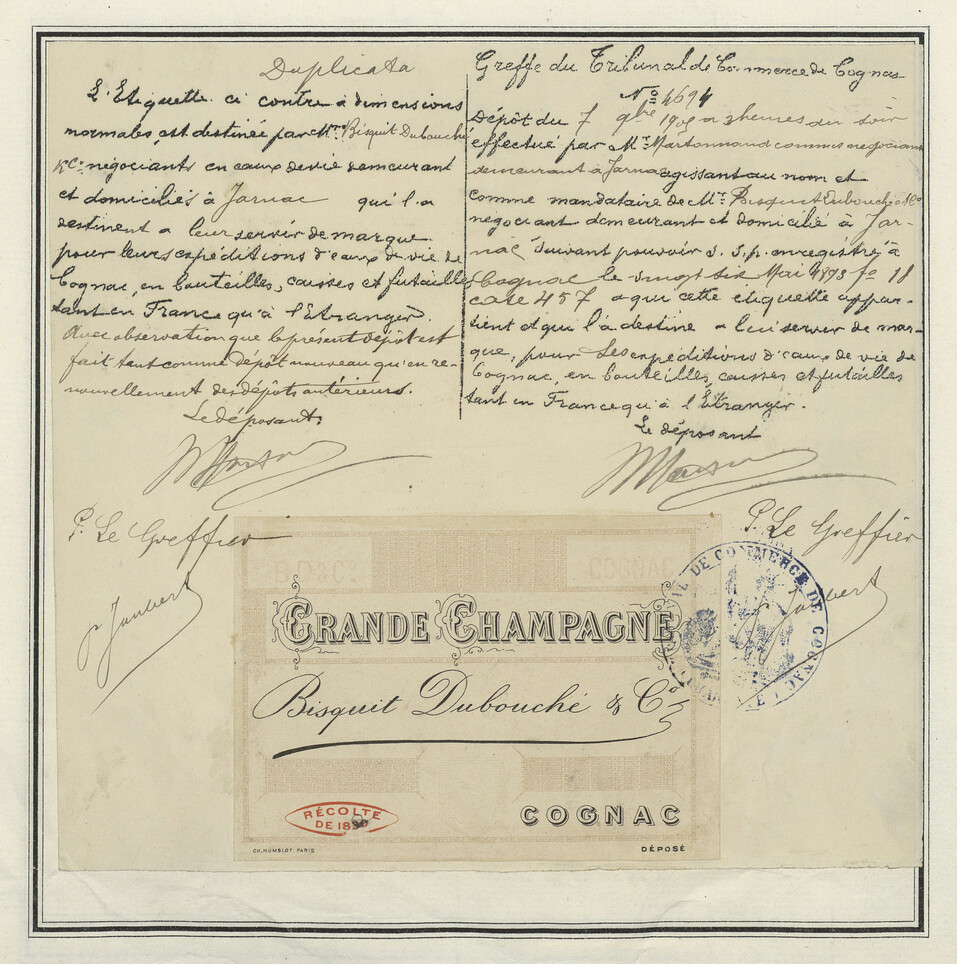 Duplicata
L'Etiquette ci contre à dimensions
normales, est destinée par Mrs Bisquit Dubouché
& Co négociants en eaux de vie demeurant
et domiciliés à Jarnac qui l'a
destinent a leur servir de marque
pour leurs expéditions d'eaux de vie de
Cognac, en bouteilles, caisses et futailles
tant en France qu'à l'Etranger.
Avec observation que le présent dépôt est
fait tant comme dépôt nouveau qu'en re-
nouvellement des dépôts antérieurs.
Le déposant,
P. Le Greffier
Jaubert
Greffe du Tribunal de Commerce de Cognac
No 4694
Dépôt du 7 9bre a 3 heures du soir
effectué par Mr commis négociant
demeurant à Jarnac agissant au nom et
comme mandataire de Mrs Bisquit Dubouché & Co
négociant demeurant et domicilié à Jar-
nac suivant pouvoir s. s. p. enregistré à
Cognac le vingt six Mai 1893 fo 18
case 457 a qui cette étiquette appar-
tient et qui l'a destine a leur servir de mar-
que, pour les expéditions d'eaux de vie de
Cognac, en bouteilles, caisses et futailles
tant en France qu'à l'Etranger.
Le déposant
P. Le Greffier
Jaubert
TRIBUNAL DE COMMERCE DE COGNAC
GRANDE CHAMPAGNE
Bisquit Dubouché & Co
RÉCOLTE
DE
COGNAC
CH. HUMBLOT PARIS
DÉPOSÉ